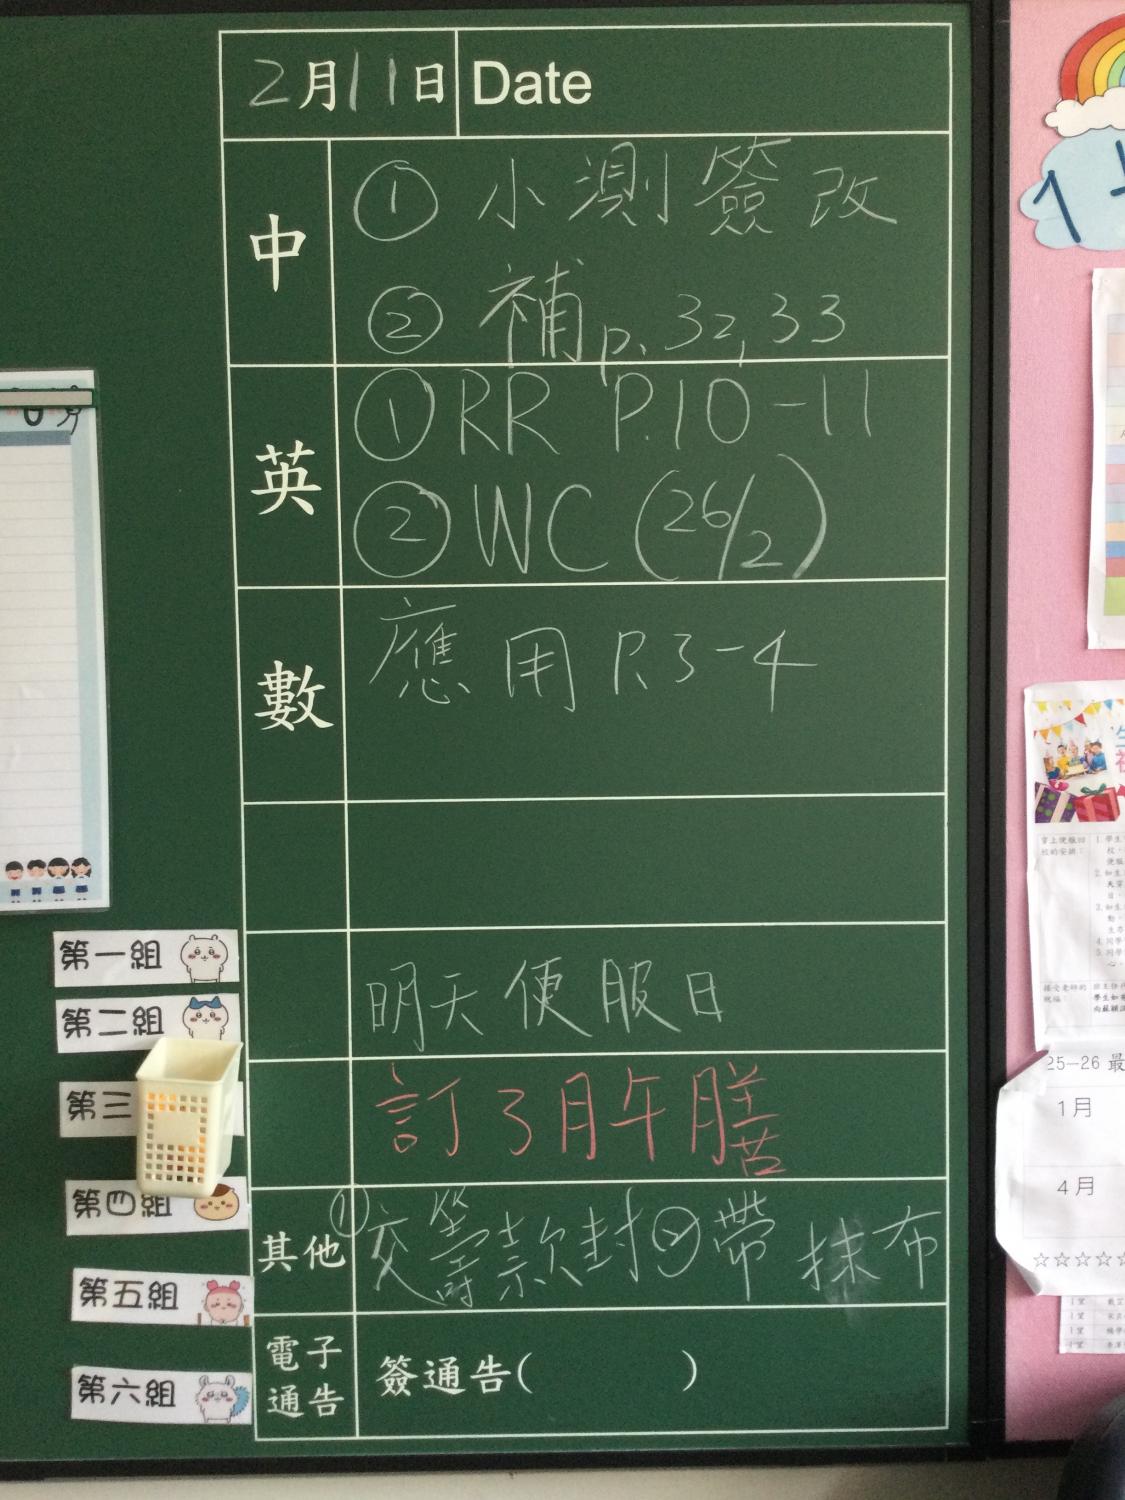 2月11日 Date
中
① 小測簽改
② 補 p. 32, 33
英
① RR P.10-11
② WC (26/2)
數
應用 P.3-4
明天便服日
訂3月午膳
其他
① 交籌款封 ② 帶抹布
電子
通告
簽通告( )
第一組
第二組
第三
第四組
第五組
第六組
25—26 最
1月
4月
☆☆☆☆☆